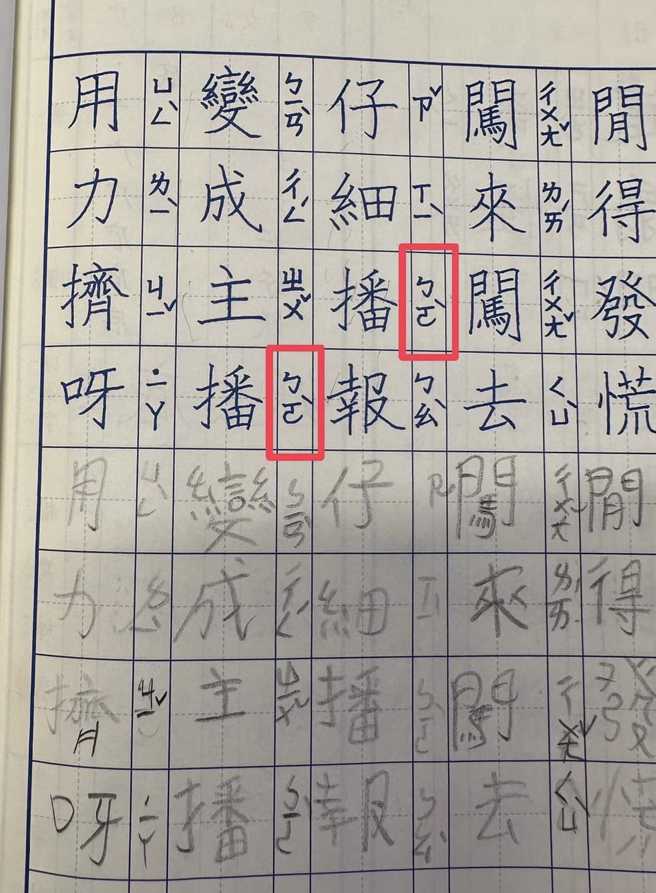 閒得發慌
闖ㄔㄨㄤˇ來ㄌㄞˊ闖ㄔㄨㄤˇ去ㄑㄩˋ
仔ㄗˇ細ㄒㄧˋ播ㄅㄛˋ報ㄅㄠˋ
變ㄅㄧㄢˋ成ㄔㄥˊ主ㄓㄨˇ播ㄅㄛˋ
用ㄩㄥˋ力ㄌㄧˋ擠ㄐㄧˇ呀˙ㄧㄚ
閒得發慌
闖ㄔㄨㄤˇ來ㄌㄞˊ闖ㄔㄨㄤˇ去ㄑㄩˋ
仔ㄗˇ細ㄒㄧˋ播ㄅㄛˋ報ㄅㄠˋ
變ㄅㄧㄢˋ成ㄔㄥˊ主ㄓㄨˇ播ㄅㄛˋ
用ㄩㄥˋ力ㄌㄧˋ擠ㄐㄧˇ呀˙ㄧㄚ